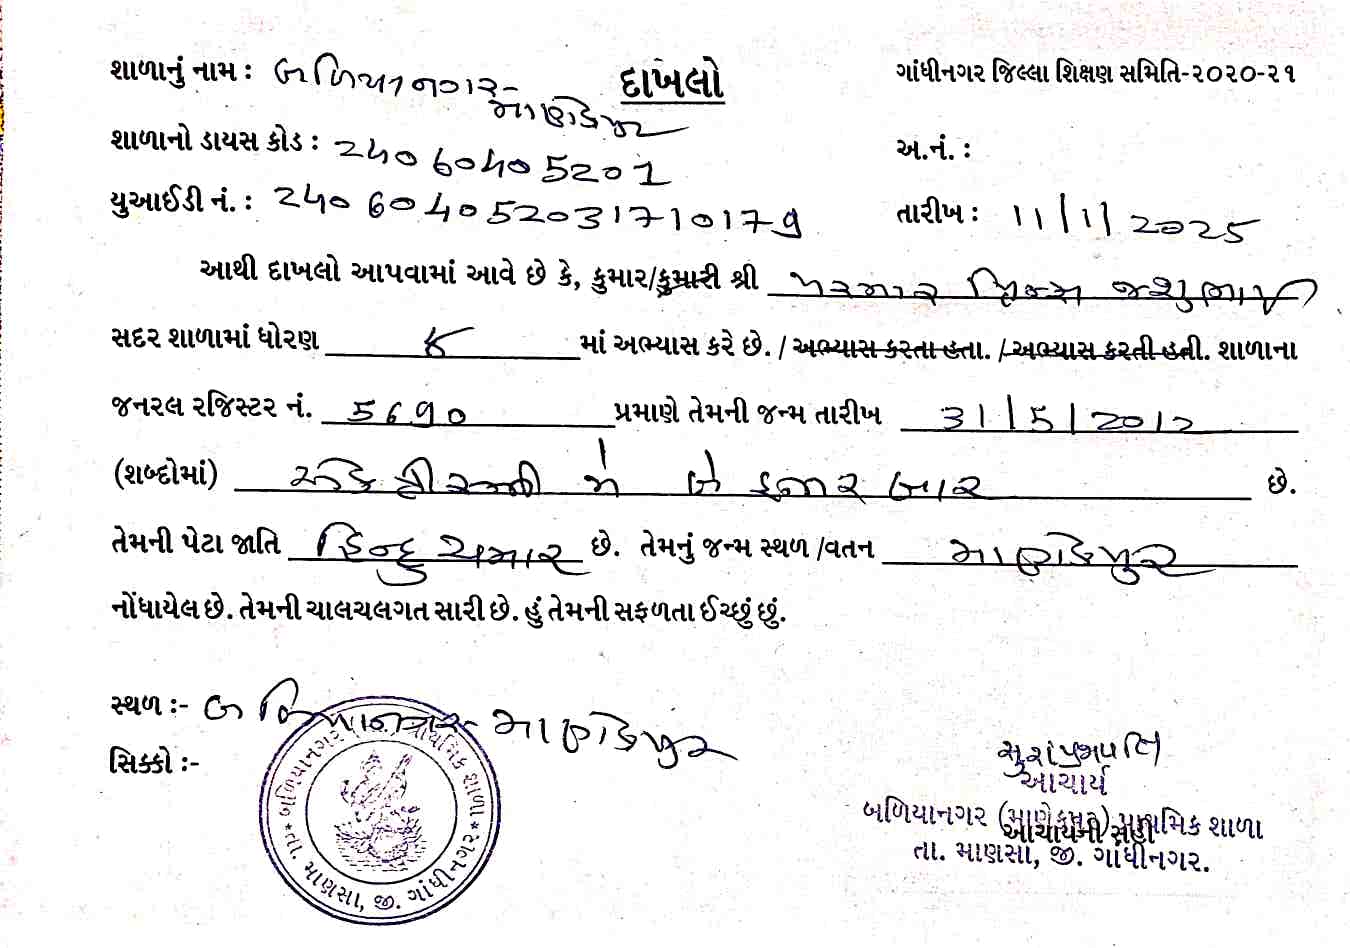 શાળાનું નામ : બળિયાનગર- માણેકપુર
દાખલો
ગાંધીનગર જિલ્લા શિક્ષણ સમિતિ-૨૦૨૦-૨૧
શાળાનો ડાયસ કોડ : 24060405201
અ.નં. :
યુઆઈડી નં. : 240604052031710179
તારીખ : 11/1/2025
આથી દાખલો આપવામાં આવે છે કે, કુમાર/કુમારી શ્રી પરમાર પ્રિન્સ જશુભાઈ
સદર શાળામાં ધોરણ ૮ માં અભ્યાસ કરે છે. / અભ્યાસ કરતા હતા. / અભ્યાસ કરતી હતી. શાળાના
જનરલ રજિસ્ટર નં. 5690 પ્રમાણે તેમની જન્મ તારીખ 31/5/2012
(શબ્દોમાં) મે બે હજાર બાર છે.
તેમની પેટા જાતિ હિન્દુ ચમાર છે. તેમનું જન્મ સ્થળ /વતન માણેકપુર
નોંધાયેલ છે. તેમની ચાલચલગત સારી છે. હું તેમની સફળતા ઈચ્છું છું.
સ્થળ :- બળિયાનગર- માણેકપુર
સિક્કો :-
બળિયાનગર પ્રાથમિક શાળા * તા. માણસા, જી. ગાંધીનગર *
આચાર્ય
બળિયાનગર (માણેકપુર) પ્રાથમિક શાળા
આચાર્યની સહી
તા. માણસા, જી. ગાંધીનગર.